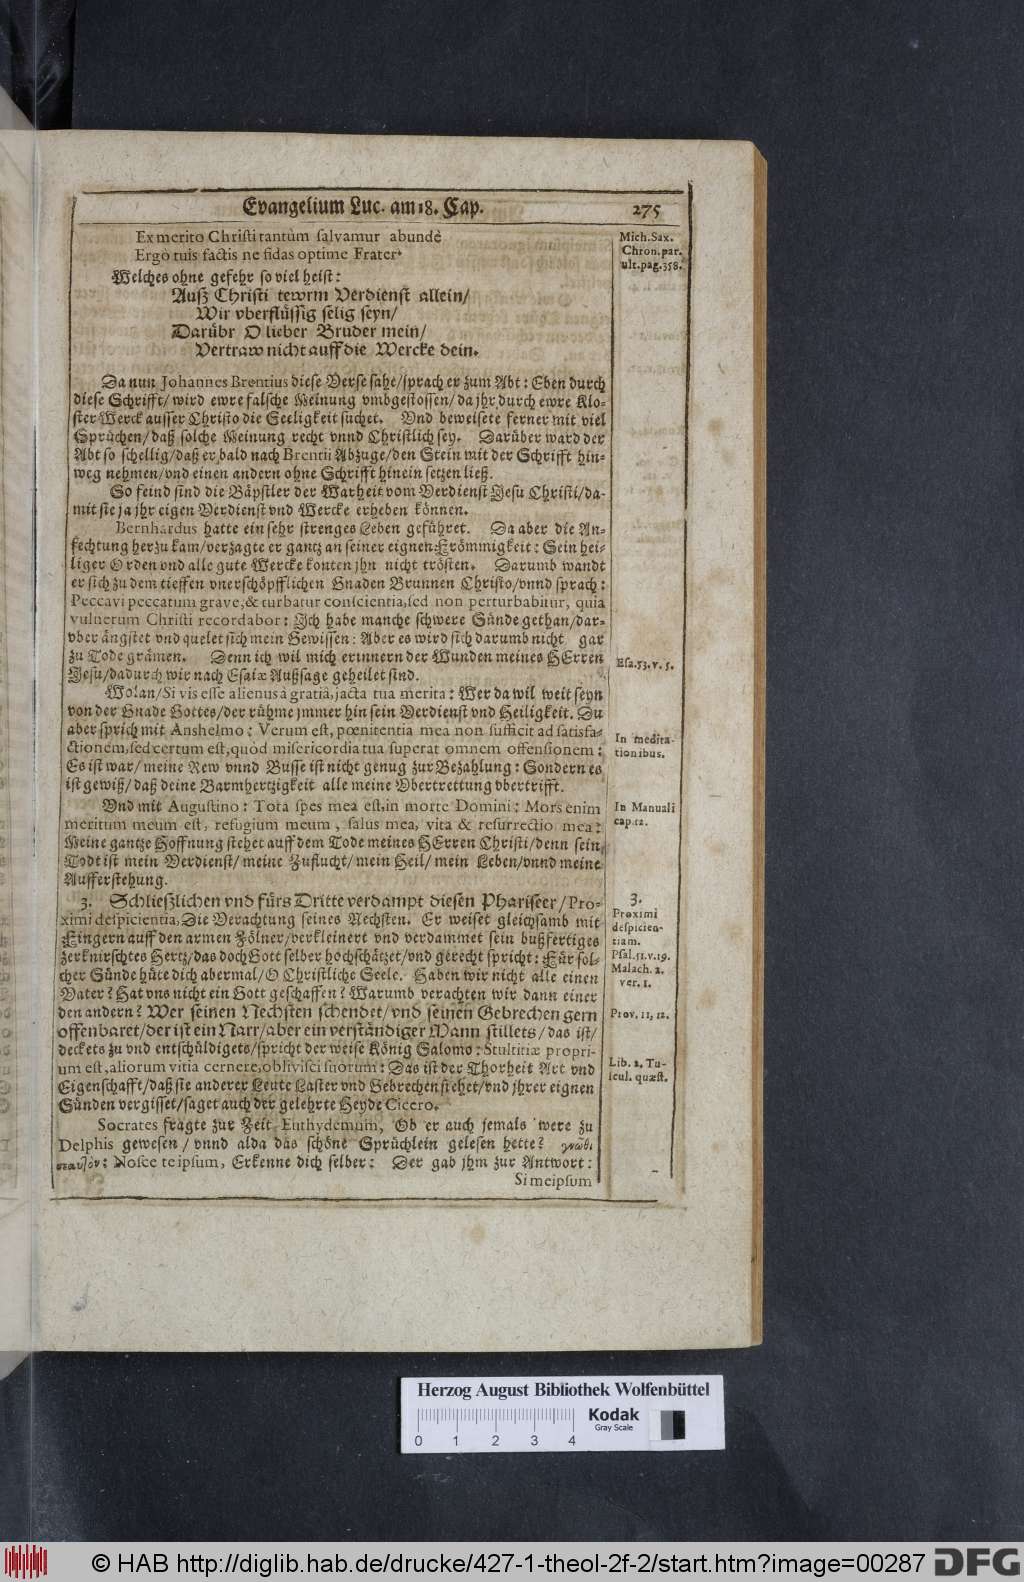 Evangelium Luc. am 18. Cap. 275
Ex merito Christi tantùm salvamur abundè
Ergò tuis factis ne fidas optime Frater.
Welches ohne gefehr so viel heist:
Auß Christi tewrm Verdienst allein/
Wir vberflüssig selig seyn/
Darübr O lieber Bruder mein/
Vertraw nicht auff die Wercke dein.
Mich. Sax.
Chron. par.
ult. pag. 358.
Da nun Johannes Brentius diese Verse sahe/sprach er zum Abt: Eben durch
diese Schrifft/ wird ewre falsche Meinung vmbgestossen/ da jhr durch ewre Klo-
ster Werck ausser Christo die Seeligkeit suchet. Vnd beweisete ferner mit viel
Sprüchen/ daß solche Meinung recht vnnd Christlich sey. Darüber ward der
Abt so schellig/ daß er bald nach Brentii Abzuge/ den Stein mit der Schrifft hin-
weg nehmen/ vnd einen andern ohne Schrifft hinein setzen ließ.
So feind sind die Bäpstler der Warheit vom Verdienst Jesu Christi/ da-
mit sie ja jhr eigen Verdienst vnd Wercke erheben können.
Bernhardus hatte ein sehr strenges Leben geführet. Da aber die An-
fechtung herzu kam/ verzagte er gantz an seiner eignen Frömmigkeit: Sein hei-
liger Orden vnd alle gute Wercke konten jhn nicht trösten. Darumb wandt
er sich zu dem tieffen vnerschöpfflichen Gnaden Brunnen Christo/ vnnd sprach:
Peccavi peccatum grave, & turbatur conscientia, sed non perturbabitur, quia
vulnerum Christi recordabor: Ich habe manche schwere Sünde gethan/ dar-
vber ängstet vnd quelet sich mein Gewissen: Aber es wird sich darumb nicht gar
zu Tode grämen. Denn ich wil mich erinnern der Wunden meines HErren
Jesu/ dadurch wir nach Esaiæ Außsage geheilet sind.
Esa. 53. v. 5.
Wolan/ Si vis esse alienus à gratiâ, jacta tua merita: Wer da wil weit seyn
von der Gnade Gottes/ der rühme jmmer hin sein Verdienst vnd Heiligkeit. Du
aber sprich mit Anshelmo: Verum est, pœnitentia mea non sufficit ad satisfa-
ctionem, sed certum est, quòd misericordia tua superat omnem offensionem:
Es ist war/ meine Rew vnnd Busse ist nicht genug zur Bezahlung: Sondern es
ist gewiß/ daß deine Barmhertzigkeit alle meine Vbertrettung vbertrifft.
In medita-
tionibus.
Vnd mit Augustino: Tota spes mea est, in morte Domini: Mors enim
meritum meum est, refugium meum, salus mea, vita & resurrectio mea:
Meine gantze Hoffnung stehet auff dem Tode meines HErren Christi/ denn sein
Todt ist mein Verdienst/ meine Zuflucht/ mein Heil/ mein Leben/ vnnd meine
Aufferstehung.
In Manuali
cap. 12.
3. Schließlichen vnd fürs Dritte verdampt diesen Phariseer/ Pro-
ximi despicientia, Die Verachtung seines Nechsten. Er weiset gleichsamb mit
Fingern auff den armen Zölner/ verkleinert vnd verdammet sein bußfertiges
zerknirschtes Hertz/ das doch Gott selber hochschätzet/ vnd gerecht spricht: Für sol-
cher Sünde hüte dich abermal/ O Christliche Seele. Haben wir nicht alle einen
Vater? Hat vns nicht ein Gott geschaffen? Warumb verachten wir dann einer
den andern? Wer seinen Nechsten schendet/ vnd seinen Gebrechen gern
offenbaret/ der ist ein Narr/ aber ein verständiger Mann stillets/ das ist/
deckets zu vnd entschüldigets/ spricht der weise König Salomo: Stultitiæ propri-
um est, aliorum vitia cernere, oblivisci suorum: Das ist der Thorheit Art vnd
Eigenschafft/ daß sie anderer Leute Laster vnd Gebrechen siehet/ vnd jhrer eignen
Sünden vergisset/ saget auch der gelehrte Heyde Cicero.
3.
Proximi
despicien-
tiam.
Psal. 51. v. 19.
Malach. 2.
ver. 1.
Prov. 11, 12.
Lib. 2. Tu-
scul. quæst.
Socrates fragte zur Zeit Euthydemum, Ob er auch jemals were zu
Delphis gewesen/ vnnd alda das schöne Sprüchlein gelesen hette? γνῶθι
σεαυτόν: Nosce te ipsum, Erkenne dich selber: Der gab jhm zur Antwort:
Si meipsum
Herzog August Bibliothek Wolfenbüttel
0 1 2 3 4
Kodak
Gray Scale
© HAB http://diglib.hab.de/drucke/427-1-theol-2f-2/start.htm?image=00287
DFG